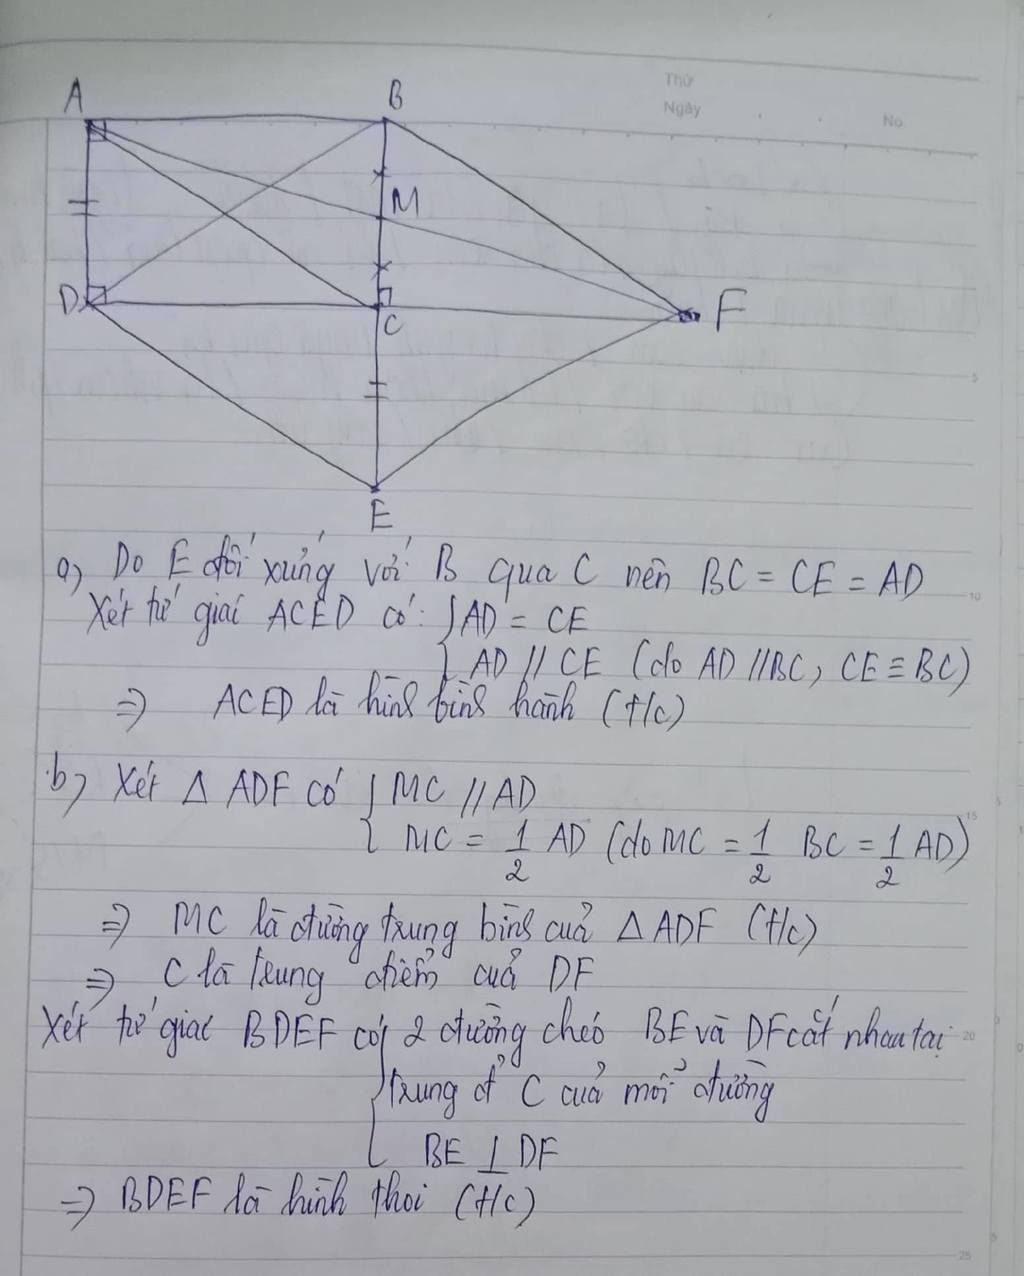 Thứ
Ngày
No
A
B
M
D
C
F
E
a) Do E đối xứng với B qua C nên BC = CE = AD
Xét tứ giác ACED có: { AD = CE
AD // CE (do AD // BC, CE ≡ BC)
=> ACED là hình bình hành (t/c)
b) Xét Δ ADF có { MC // AD
MC = 1/2 AD (do MC = 1/2 BC = 1/2 AD)
=> MC là đường trung bình của Δ ADF (t/c)
=> C là trung điểm của DF
Xét tứ giác BDEF có { 2 đường chéo BE và DF cắt nhau tại
trung đ' C của mỗi đường
BE ⊥ DF
=> BDEF là hình thoi (t/c)
5
10
15
20
25